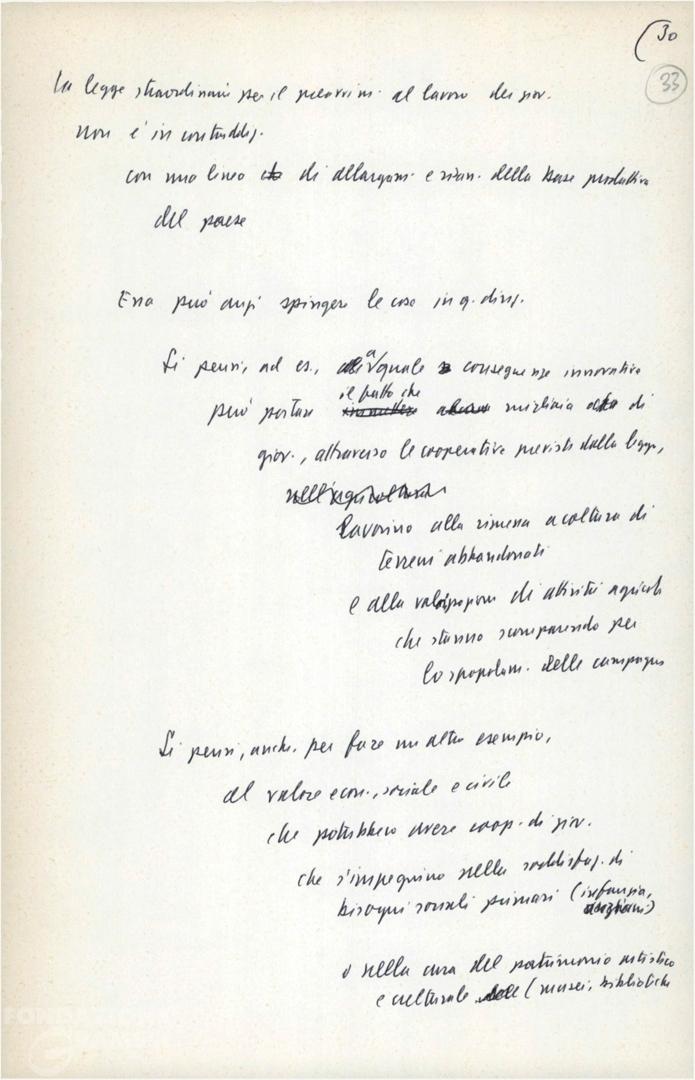 30
33
La legge straordinaria per il preavviam. al lavoro dei giov.
non è in contraddiz.
con una linea di allargam. e risan. della base produttiva
del paese
Essa può anzi spingere le cose in q. direz.
Si pensi, ad es., a quale conseguenze innovative
il fatto che
può portare migliaia di
giov., attraverso le cooperative previste dalla legge,
nell'agricoltura
lavorino alla rimessa a coltura di
terreni abbandonati
e alla valorizzazione di attività agricole
che stanno scomparendo per
lo spopolam. delle campagne
Si pensi, anche, per fare un altro esempio,
al valore econ., sociale e civile
che potrebbero avere coop. di giov.
che s'impegnino nella soddisfaz. di
bisogni sociali primari (infanzia,
anziani)
o nella cura del patrimonio artistico
e culturale (musei, biblioteche